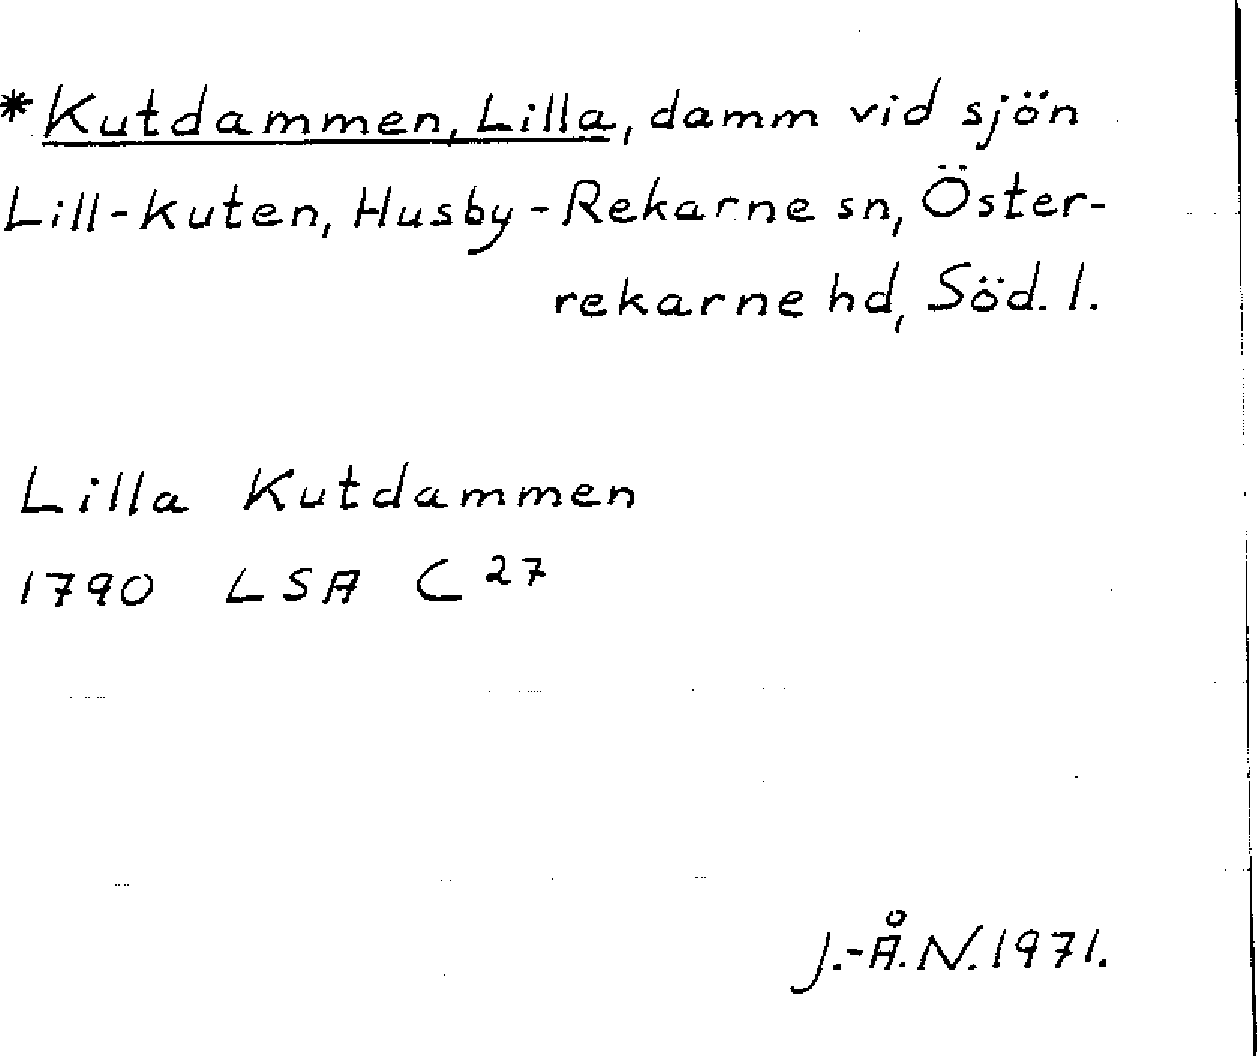 *Kutdammen, Lilla, damm vid sjön
Lill-kuten, Husby-Rekarne sn, Öster-
rekarne hd, Söd. l.
Lilla Kutdammen
1790 LSA C 27
J.-Å. N. 1971.